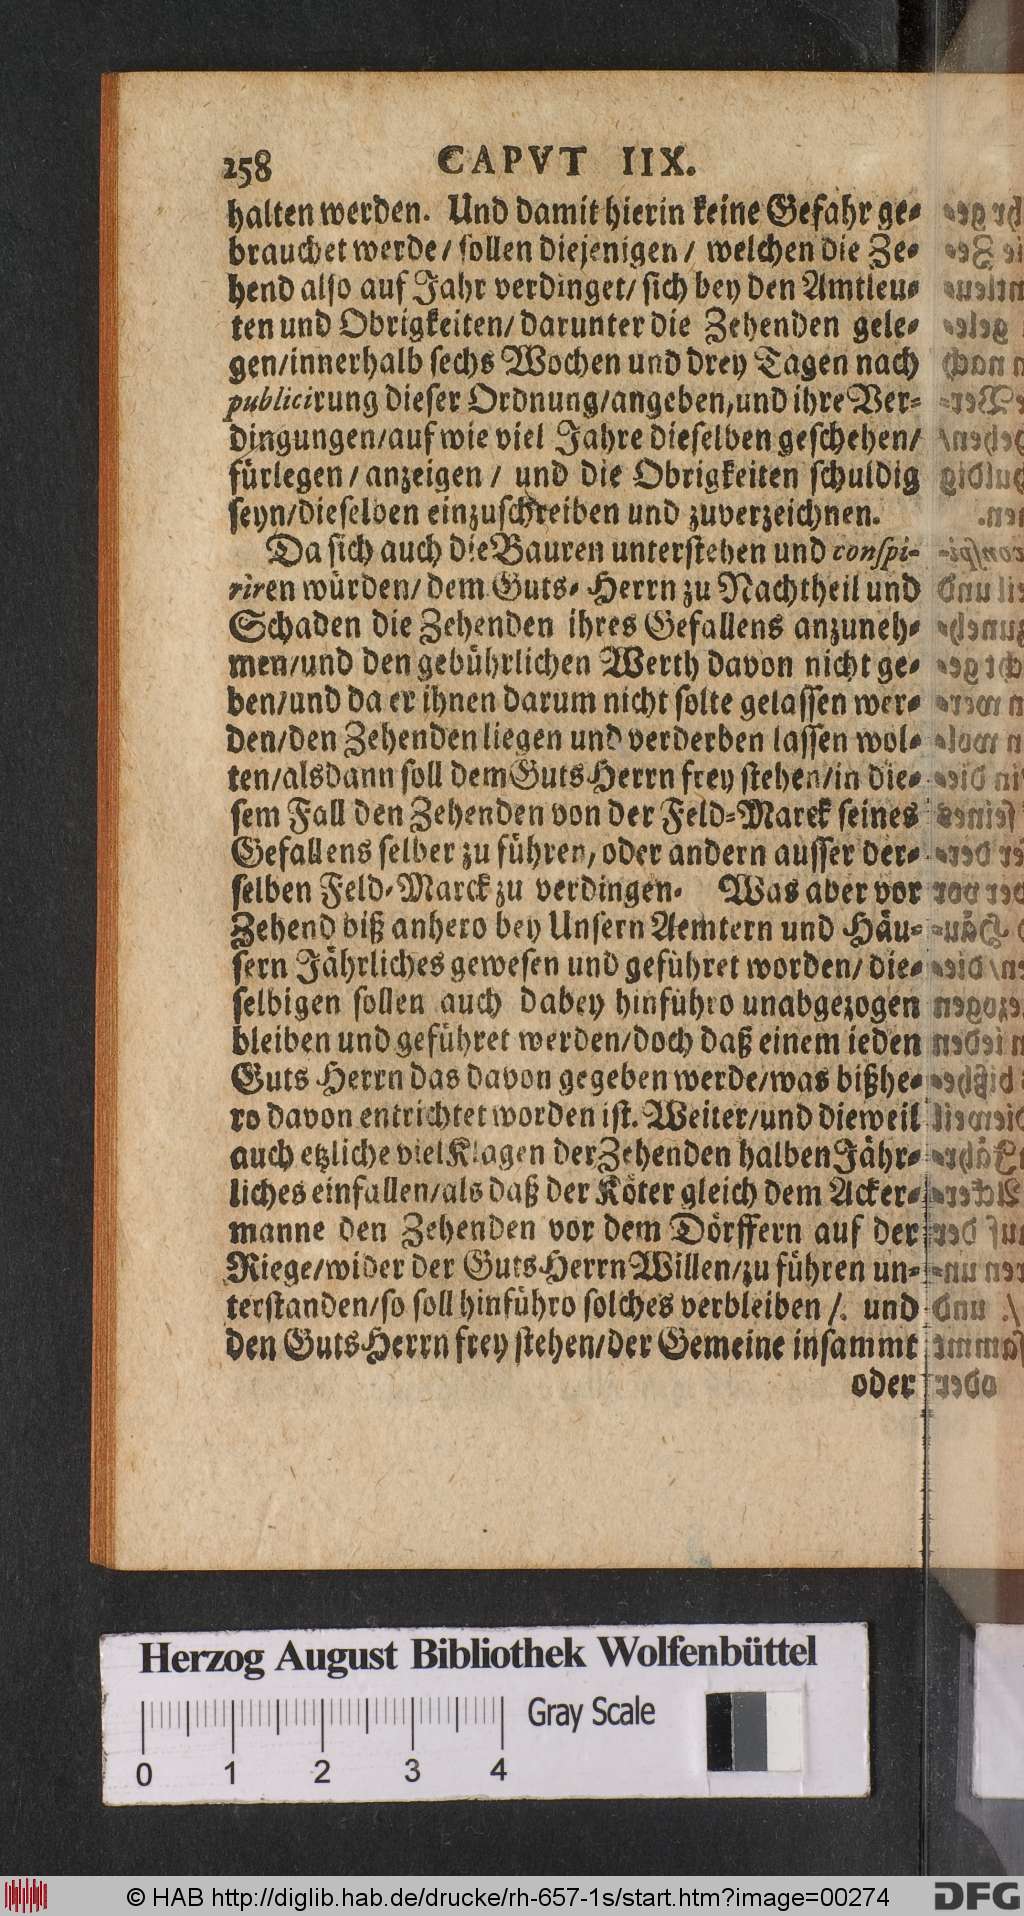 258 CAPVT IIX.
halten werden. Und damit hierin keine Gefahr ge-
brauchet werde/ sollen diejenigen/ welchen die Ze-
hend also auf Jahr verdinget/ sich bey den Amtleu-
ten und Obrigkeiten/ darunter die Zehenden gele-
gen/innerhalb sechs Wochen und drey Tagen nach
publicirung dieser Ordnung/angeben,und ihre Ver-
dingungen/auf wie viel Jahre dieselben geschehen/
fürlegen/ anzeigen/ und die Obrigkeiten schuldig
seyn/dieselben einzuschreiben und zuverzeichnen.
Da sich auch die Bauren unterstehen und conspi-
riren würden/ dem Guts-Herrn zu Nachtheil und
Schaden die Zehenden ihres Gefallens anzuneh-
men/und den gebührlichen Werth davon nicht ge-
ben/und da er ihnen darum nicht solte gelassen wer-
den/den Zehenden liegen und verderben lassen wol-
ten/alsdann soll dem Guts Herrn frey stehen/in die-
sem Fall den Zehenden von der Feld-Marck seines
Gefallens selber zu führen, oder andern ausser der-
selben Feld-Marck zu verdingen. Was aber vor
Zehend biß anhero bey Unsern Aemtern und Häu-
sern Jährliches gewesen und geführet worden/ die-
selbigen sollen auch dabey hinführo unabgezogen
bleiben und geführet werden/doch daß einem ieden
Guts Herrn das davon gegeben werde/was bißhe-
ro davon entrichtet worden ist. Weiter/und dieweil
auch etzliche viel Klagen der Zehenden halben Jähr-
liches einfallen/als daß der Köter gleich dem Acker-
manne den Zehenden vor dem Dörffern auf der
Riege/wider der Guts Herrn Willen/zu führen un-
terstanden/so soll hinführo solches verbleiben /. und
den Guts Herrn frey stehen/der Gemeine insammt
oder
Herzog August Bibliothek Wolfenbüttel
Gray Scale
0 1 2 3 4
© HAB http://diglib.hab.de/drucke/rh-657-1s/start.htm?image=00274
DFG